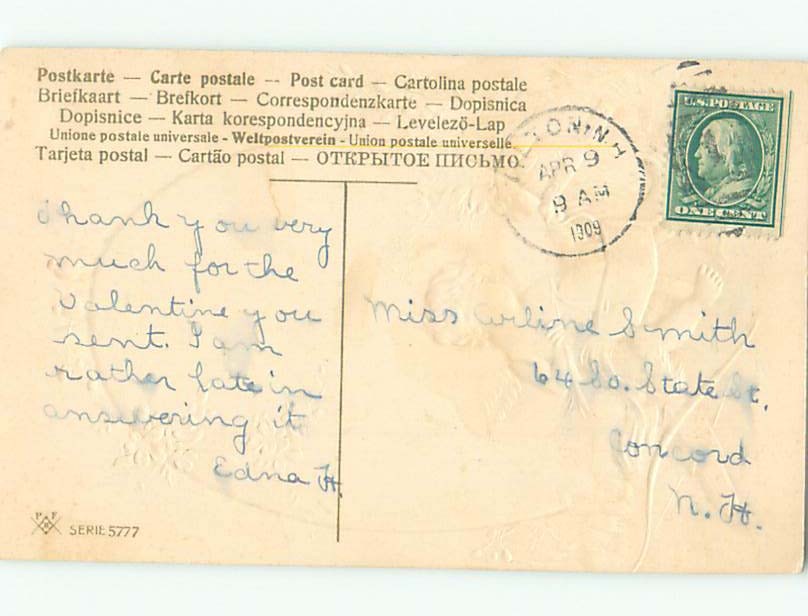 Postkarte — Carte postale -- Post card — Cartolina postale
Briefkaart — Brefkort — Correspondenzkarte — Dopisnica
Dopisnice — Karta korespondencyjna — Levelező-Lap
Unione postale universale - Weltpostverein - Union postale universelle.
Tarjeta postal — Cartão postal — ОТКРЫТОЕ ПИСЬМО
TON N.H
APR 9
9 AM
1909
U.S. POSTAGE
ONE CENT
Thank you very
much for the
Valentine you
sent. I am
rather late in
answering it
Edna H.
Miss Arline Smith
64 So. State St.
Concord
N. H.
P F
B
SERIE 5777